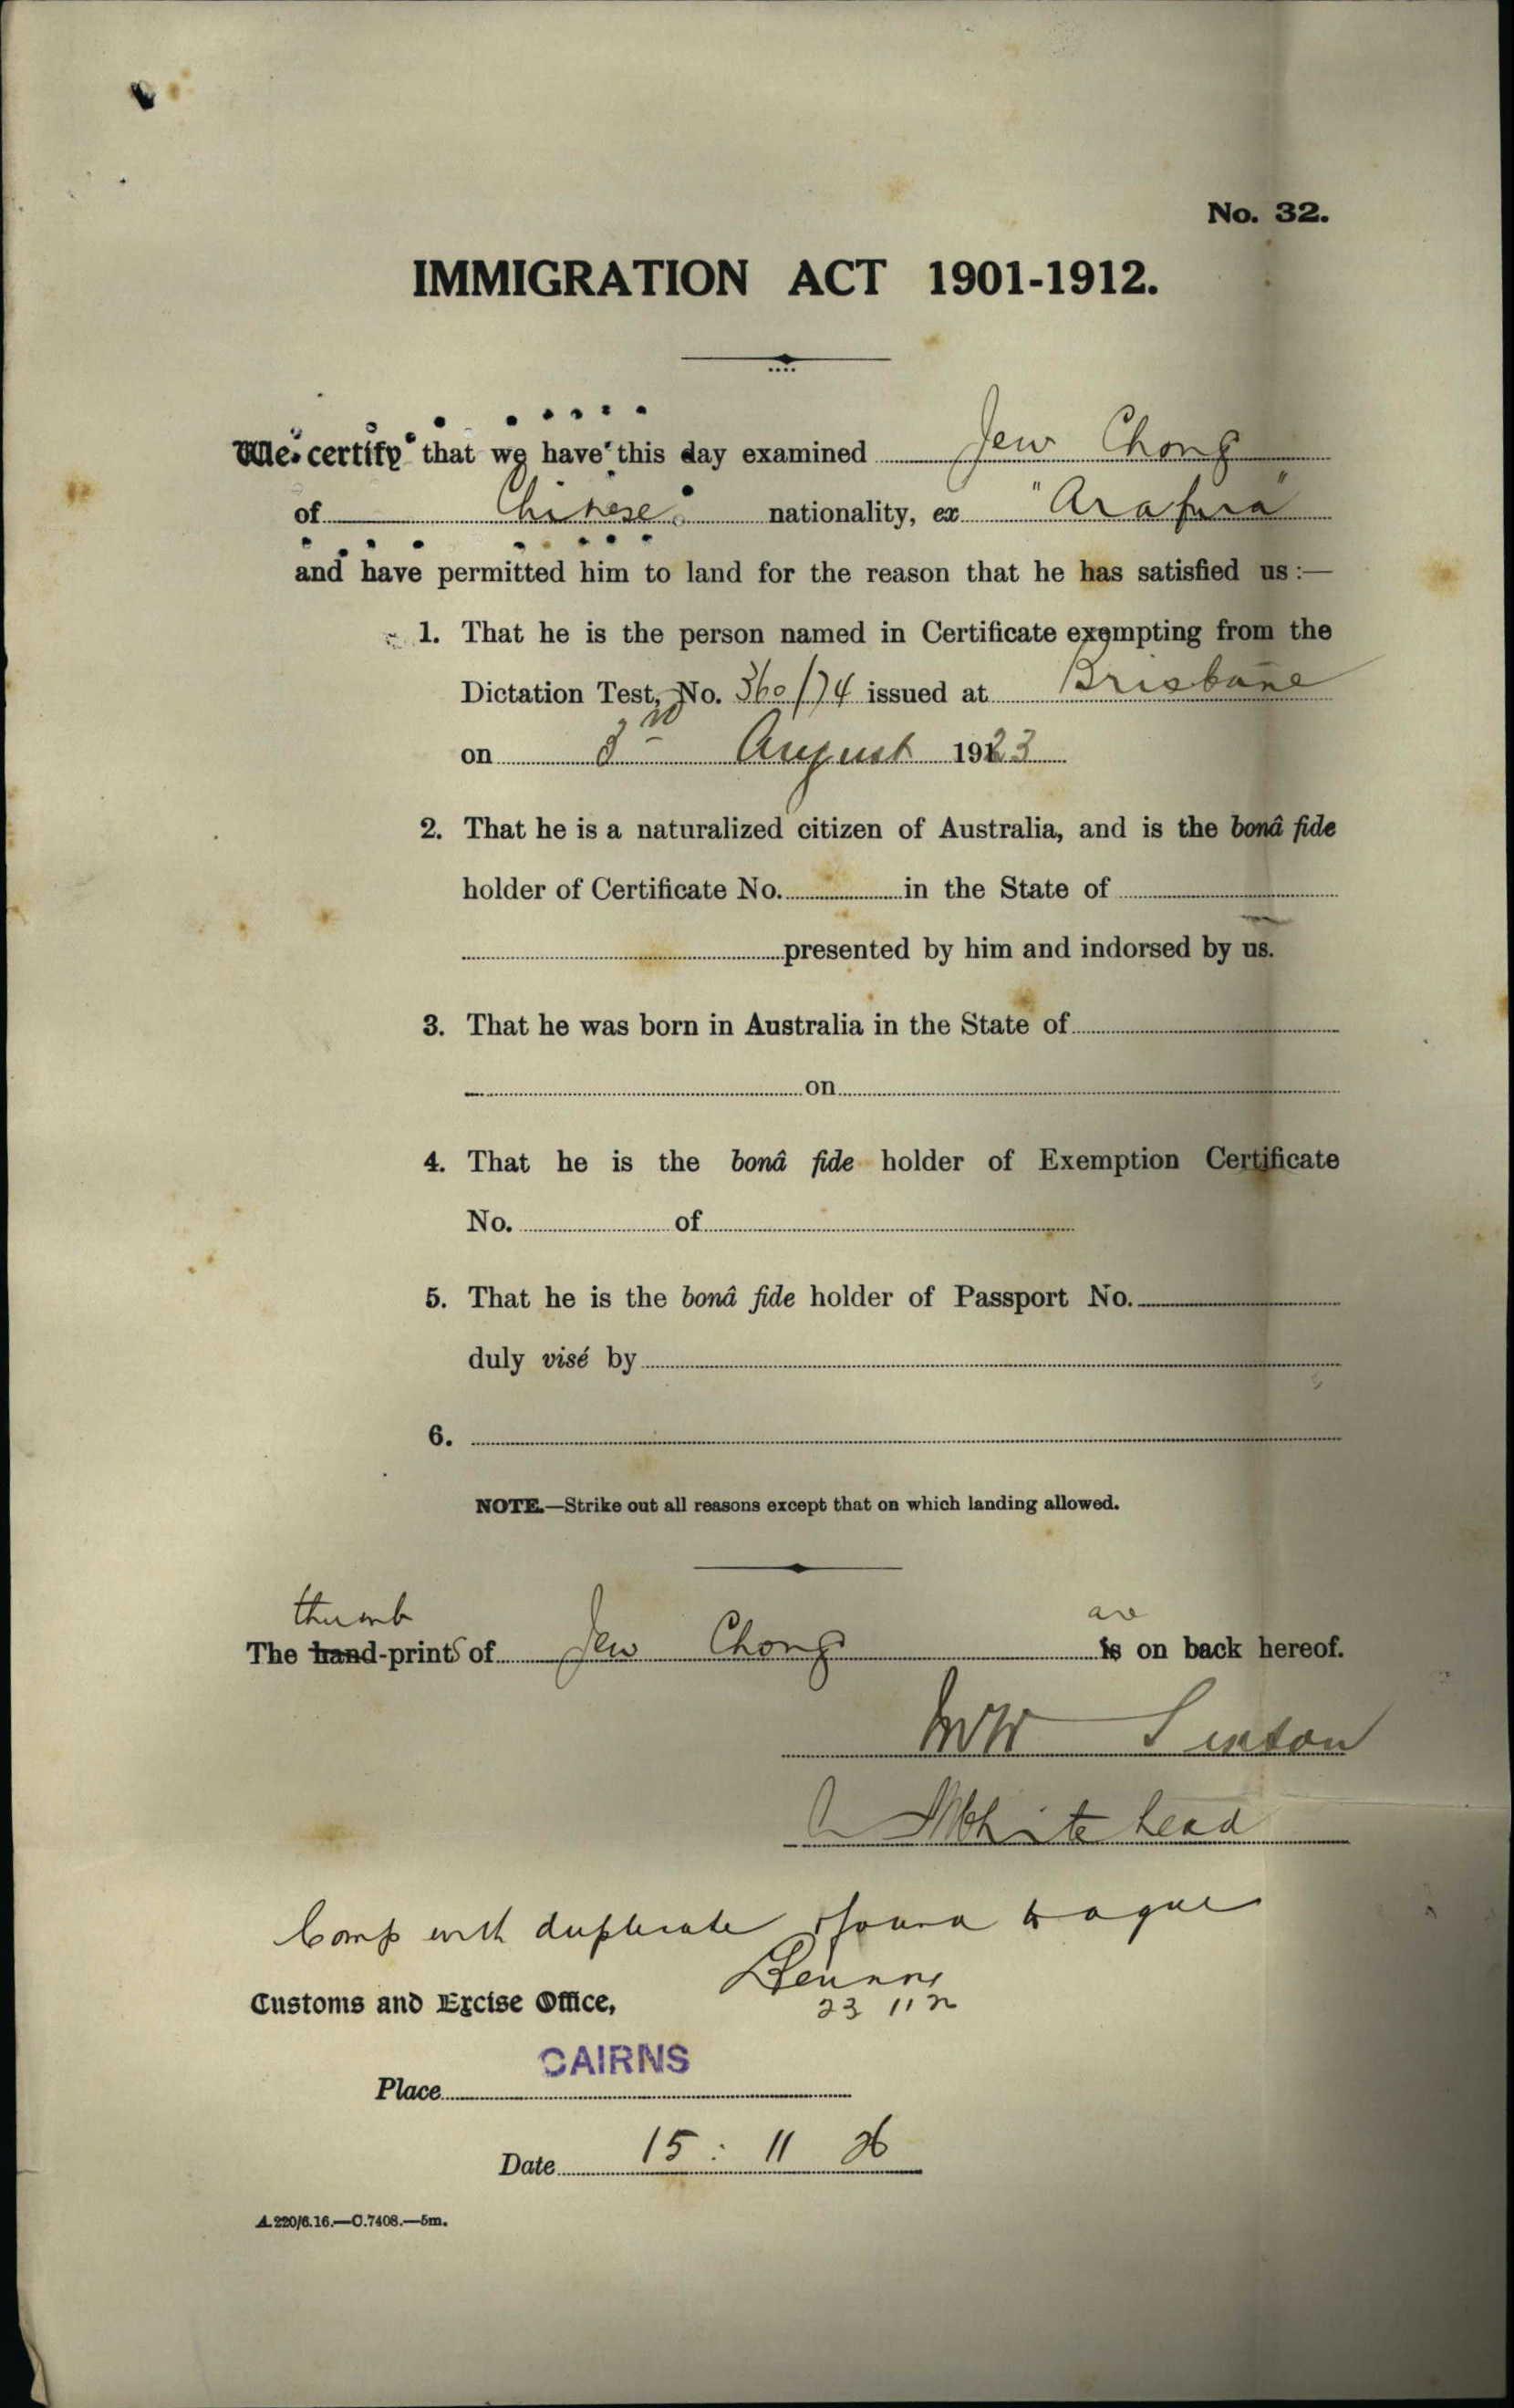 No. 32.
IMMIGRATION ACT 1901-1912.
We certify that we have this day examined Jew Chong
of Chinese nationality, ex "Arafura"
and have permitted him to land for the reason that he has satisfied us:—
1. That he is the person named in Certificate exempting from the
Dictation Test, No. 360/74 issued at Brisbane
on 3rd August 1923
2. That he is a naturalized citizen of Australia, and is the bonâ fide
holder of Certificate No. in the State of
presented by him and indorsed by us.
3. That he was born in Australia in the State of
on
4. That he is the bonâ fide holder of Exemption Certificate
No. of
5. That he is the bonâ fide holder of Passport No.
duly visé by
6.
NOTE.—Strike out all reasons except that on which landing allowed.
thumb are
The hand-prints of Jew Chong is on back hereof.
Whitehead
Comp with duplicate & found to agree
23 11
Customs and Excise Office,
CAIRNS
Place
Date 15 : 11 26
A.220/6.16.—C.7408.—5m.